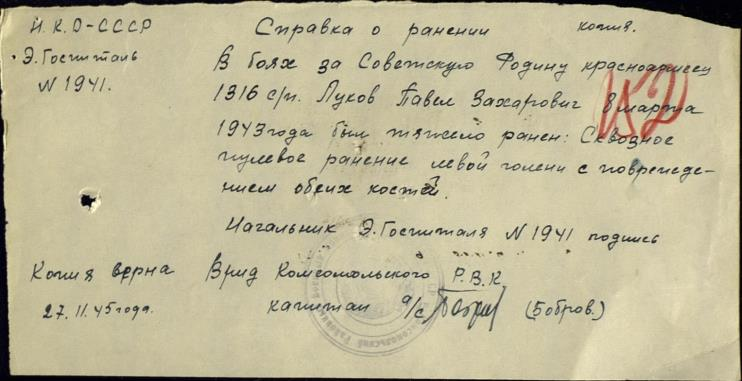 Н.К.О-СССР
Э.Госпиталь
N 1941.
Справка о ранении
копия.
В боях за Советскую Родину красноармеец
1316 с/п. Луков Павел Захарович 8 марта
1943 года был тяжело ранен: Сквозное
пулевое ранение левой голени с поврежде-
нием обеих костей.
Начальник Э.Госпиталя N 1941 подпись
Копия верна
27.11.45 года.
Врид Комсомольского Р.В.К.
капитан а/с (Бобров.)